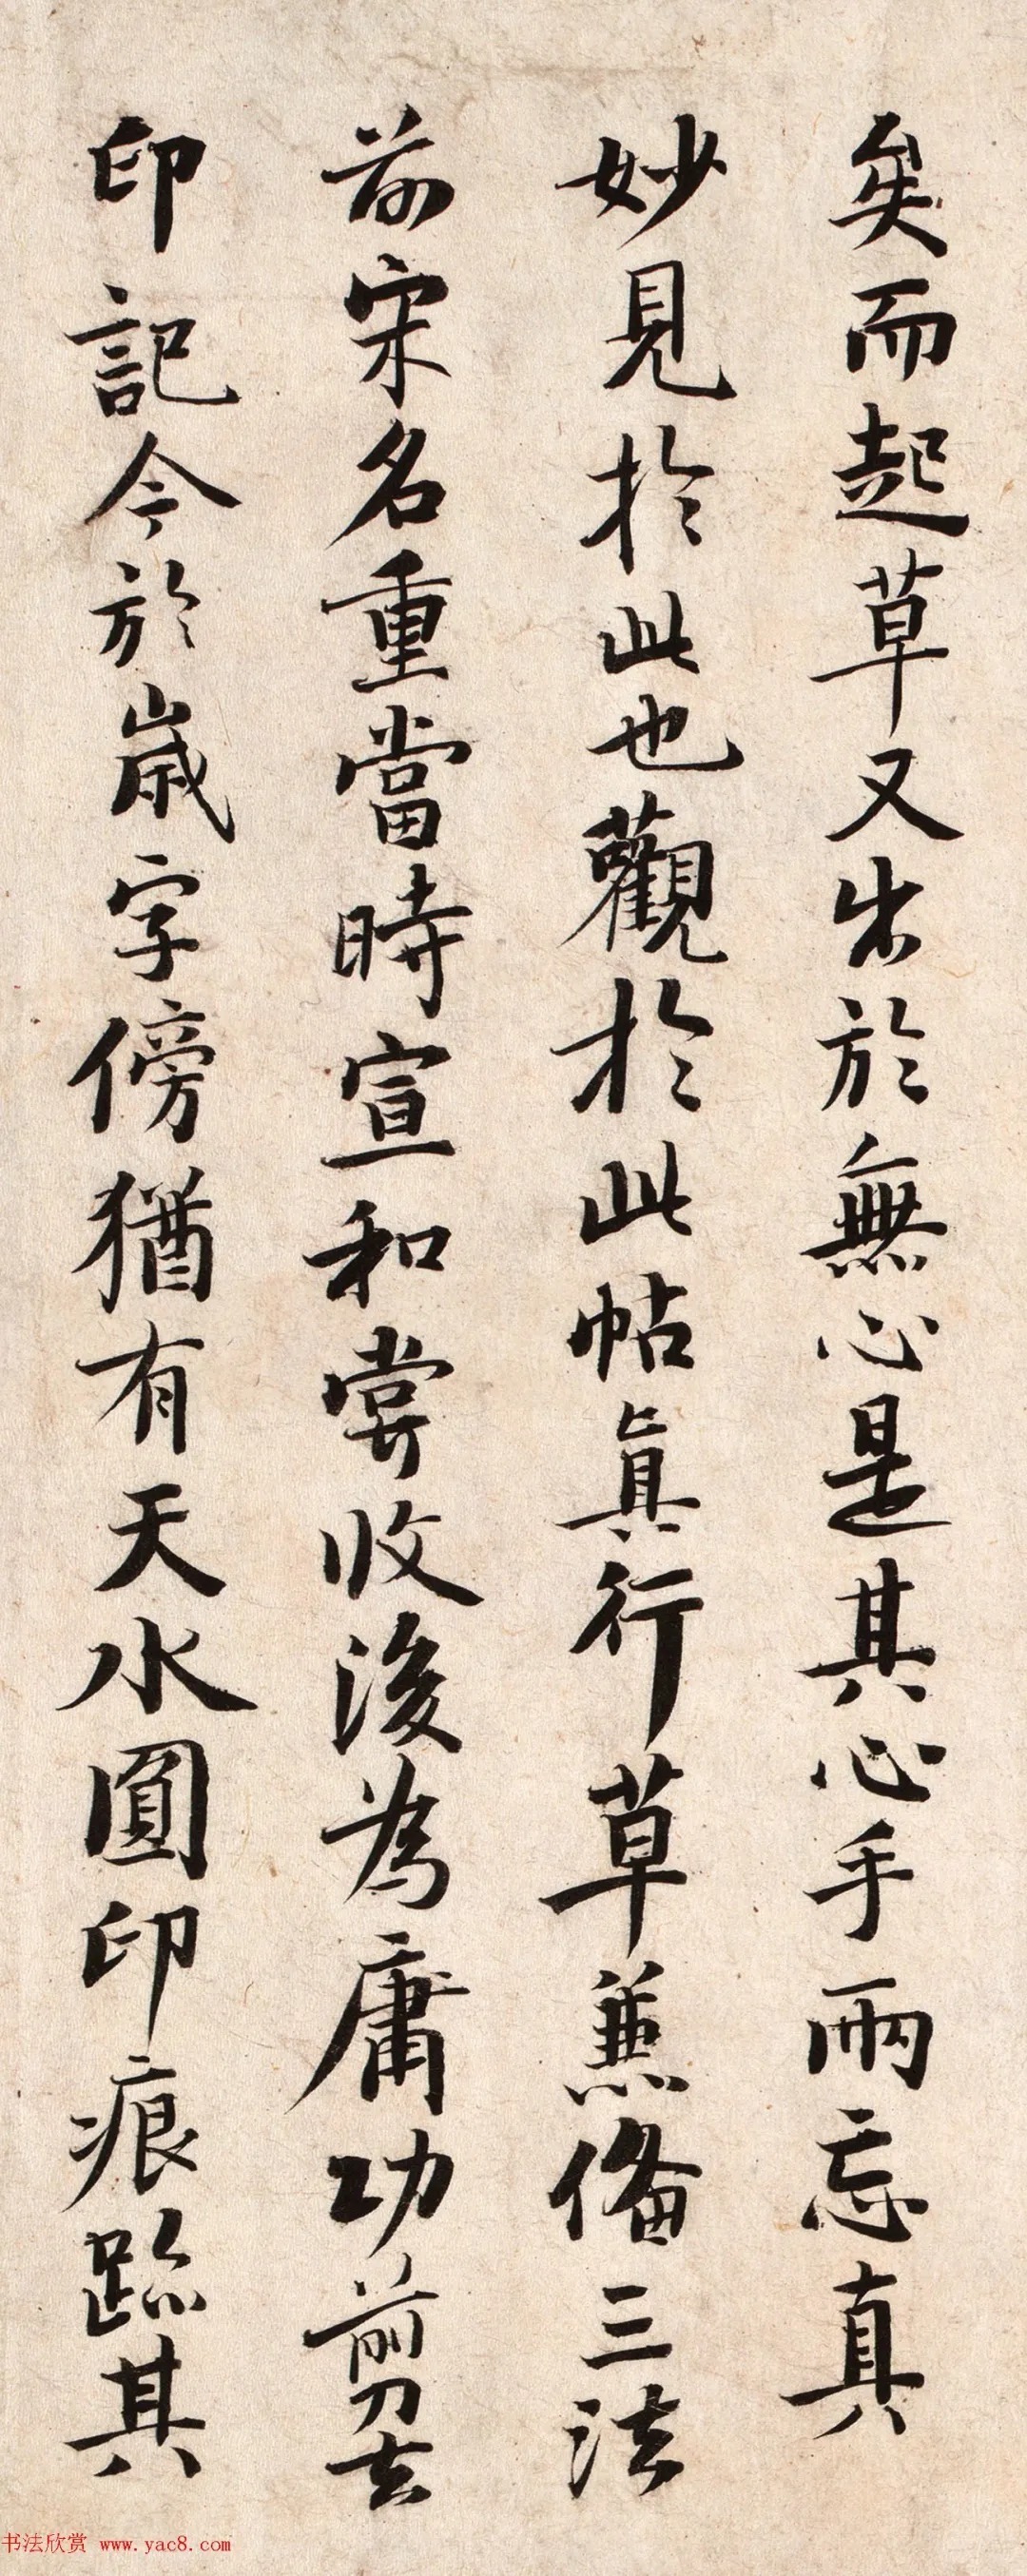 矣而起草又出於無心是其心手兩忘真
妙見於此也觀於此帖真行草兼備三法
前宋名重當時宣和嘗收後為庸功剪去
印記今於歲字傍猶有天水圓印痕跡其
书法欣赏 www.yac8.com